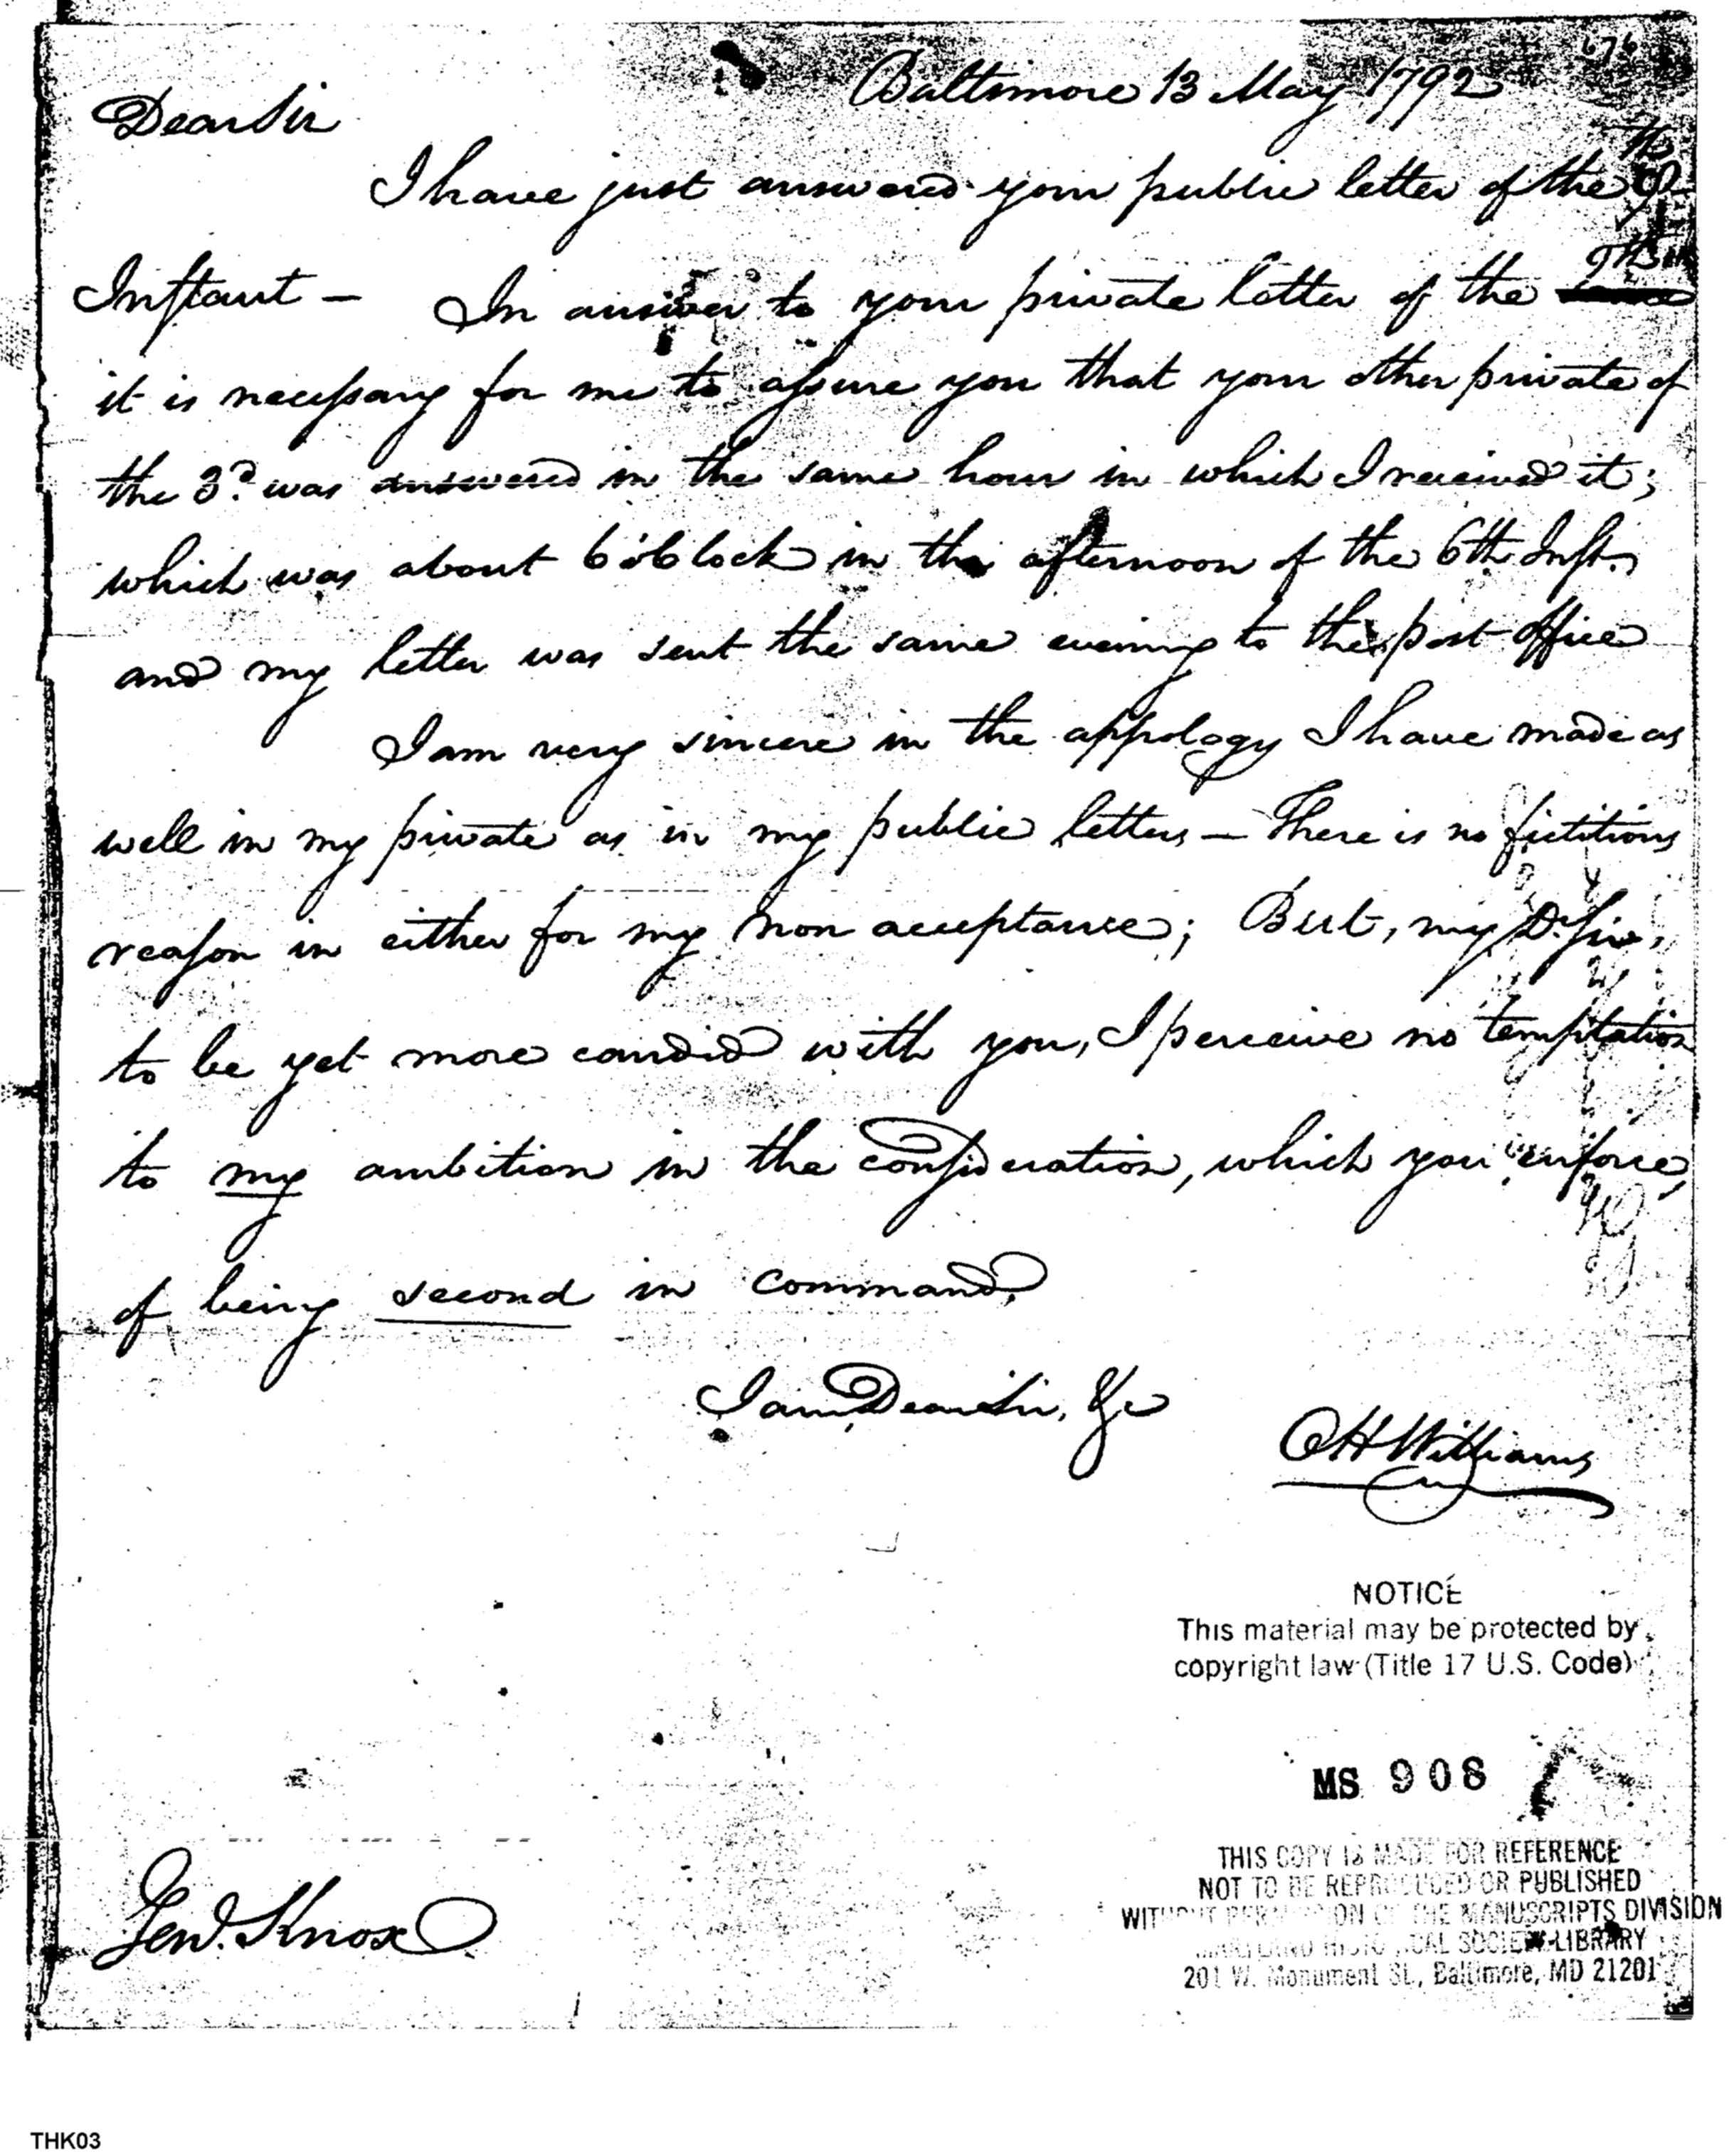 676
Baltimore 13 May 1792
Dear Sir
I have just answered your public letter of the 9th
Instant — In answer to your private letter of the 9th
it is necessary for me to assure you that your other private of
the 3d. was answered in the same hour in which I received it;
which was about 6 oClock in the afternoon of the 6th Inst.
and my letter was sent the same evening to the post office
I am very sincere in the appology I have made as
well in my private as in my public letters — There is no fictitious
reason in either for my non acceptance; But, my Dr. Sir,
to be yet more candid with you, I perceive no temptation
to my ambition in the consideration, which you enforce,
of being second in command.
I am, Dear Sir, &c
OH Williams
NOTICE
This material may be protected by
copyright law (Title 17 U.S. Code)
MS 908
THIS COPY IS MADE FOR REFERENCE
NOT TO BE REPRODUCED OR PUBLISHED
WITHOUT PERMISSION OF THE MANUSCRIPTS DIVISION
MARYLAND HISTORICAL SOCIETY LIBRARY
201 W. Monument St., Baltimore, MD 21201
Genl. Knox
THK03